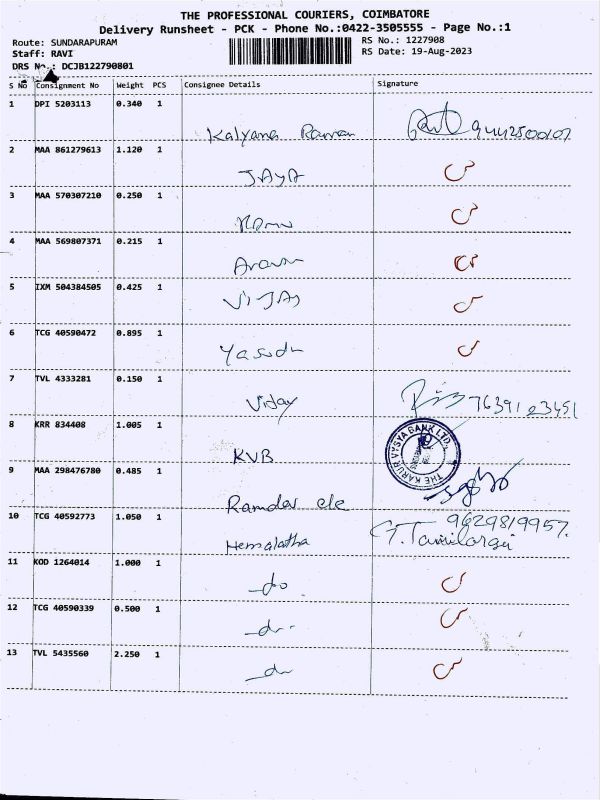 THE PROFESSIONAL COURIERS, COIMBATORE
Delivery Runsheet - PCK - Phone No.:0422-3505555 - Page No.:1
Route: SUNDARAPURAM
RS No.: 1227908
Staff: RAVI
RS Date: 19-Aug-2023
DRS No.: DCJB122790801
S No Consignment No Weight PCS Consignee Details Signature
1 DPI 5203113 0.340 1
Kalyana Raman
2 MAA 861279613 1.120 1
JAYA
3 MAA 570307210 0.250 1
Ramu
4 MAA 569807371 0.215 1
5 IXM 504384505 0.425 1
VIJAY
6 TCG 40590472 0.895 1
7 TVL 4333281 0.150 1
Vijay
8 KRR 834408 1.005 1
THE KARUR VYSYA BANK LTD.
KVB
9 MAA 298476780 0.485 1
Ramdas
10 TCG 40592773 1.050 1 9629819957.
Hemalatha
11 KOD 1264014 1.000 1
do
12 TCG 40590339 0.500 1
13 TVL 5435560 2.250 1